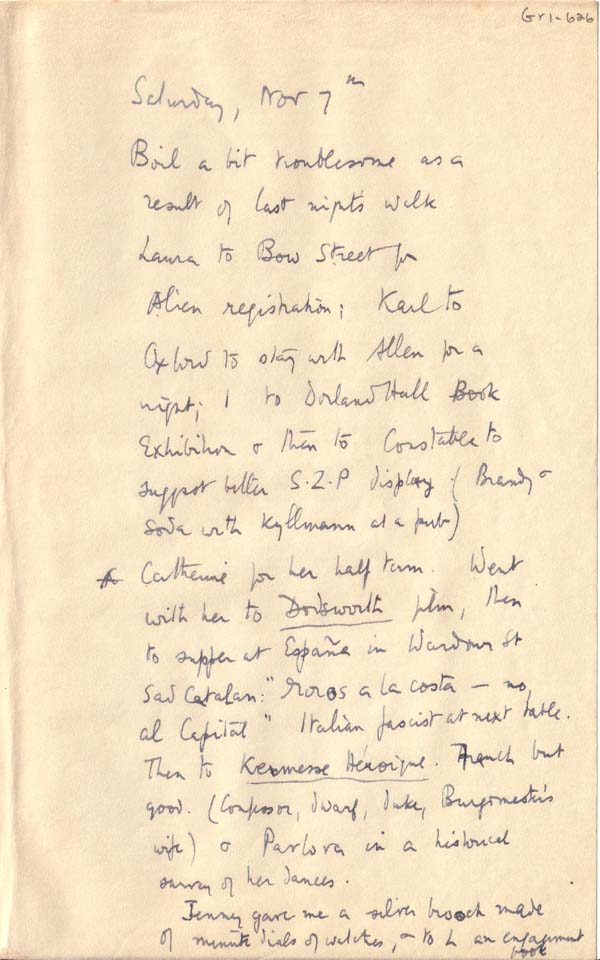 Gr1-626
Saturday, Nov 7th
Boil a bit troublesome as a
result of last night's walk
Laura to Bow Street for
Alien registration; Karl to
Oxford to stay with Allen for a
night; I to Dorland Hall Book
Exhibition & then to Constable to
suggest better S.Z.P display. (Brandy &
Soda with Kyllmann at a pub)
Catherine for her half term. Went
with her to Dodsworth film, then
to supper at España in Wardour St
Sad Catalan: "Moros a la costa — no,
al Capital" Italian fascist at next table.
Then to Kermesse Héroique. French but
good. (Confessor, dwarf, duke, Burgomester's
wife) & Pavlova in a historical
survey of her dances.
Jenny gave me a silver brooch made
of minute dials of watches, & to L an engagement
book